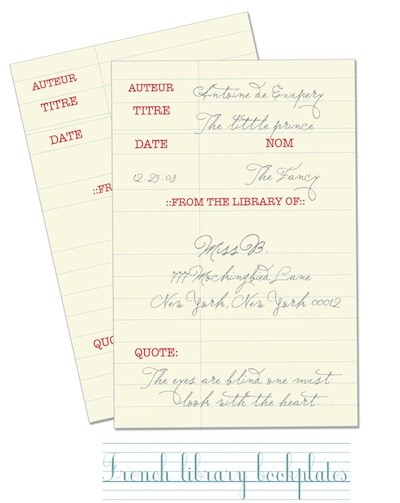 AUTEUR
TITRE
DATE
::FR
QUO
AUTEUR Antoine de Exupery
TITRE The little prince
DATE NOM
12.25.08 The Fancy
::FROM THE LIBRARY OF::
Miss B.
777 Mockingbird Lane
New York, New York 00012
QUOTE:
The eyes are blind one must
look with the heart...
French library bookplates